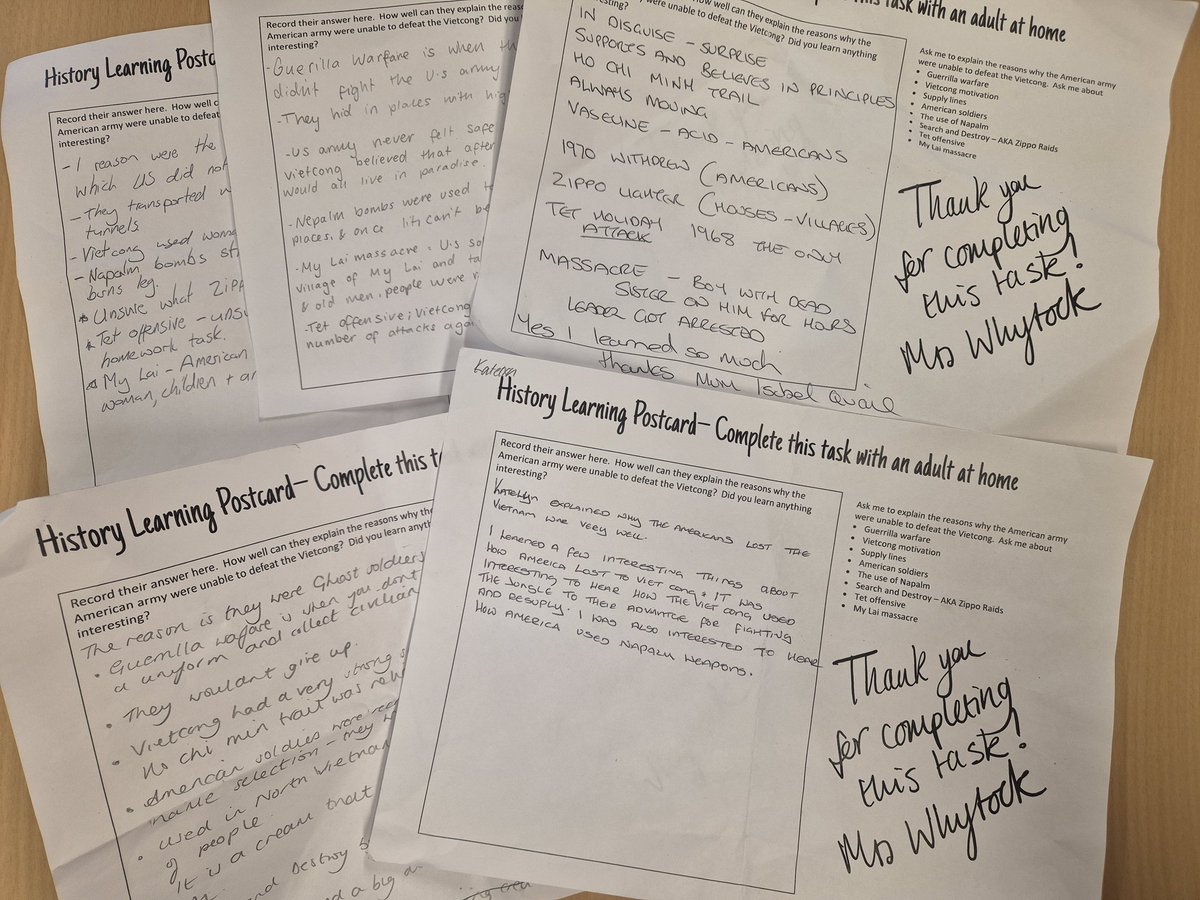 History Learning Postc
Record their answer here. How well ca
American army were unable to defeat
interesting?
- 1 reason were the
which US did not
- They transported w
tunnels
- Vietcong used wom
- Napalm bombs st
burns leg.
* Unsure what Zipp
* Tet offensive - unsu
homework task.
My Lai - American
woman, children + a
Record their answer here. How well can they explain the reasons why the
American army were unable to defeat the Vietcong? Did you learn anything
interesting?
- Guerilla Warfare is when th
didn't fight the U.S army
- They hid in places with hig
- US army never felt safe
vietcong believed that after
would all live in paradise.
- Nepalm bombs were used to
places, & once lit, can't be
- My Lai massacre: U.S so
village of My Lai and ta
& old men, people were r
- Tet offensive; Vietcong
number of attacks agai
this task with an adult at home
How well can they explain the reasons why the
were unable to defeat the Vietcong? Did you learn anything
IN DISGUISE - SURPRISE
SUPPORTS AND BELIEVES IN PRINCIPLES
HO CHI MINH TRAIL
ALWAYS MOVING
VASELINE - ACID - AMERICANS
1970 WITHDREW (AMERICANS)
ZIPPO LIGHTER (HOUSES - VILLAGES)
TET HOLIDAY 1968 THE ONLY
ATTACK
MASSACRE - BOY WITH DEAD
SISTER ON HIM FOR HOURS
LEADER GOT ARRESTED
Yes I learned so much
thanks Mum Isabel Quail
Ask me to explain the reasons why the American army
were unable to defeat the Vietcong. Ask me about
• Guerrilla warfare
• Vietcong motivation
• Supply lines
• American soldiers
• The use of Napalm
• Search and Destroy – AKA Zippo Raids
• Tet offensive
• My Lai massacre
Thank you
for completing
this task!
Mrs Whytock
History Learning Postcard– Complete this t
Record their answer here. How well can they explain the reasons why the
American army were unable to defeat the Vietcong? Did you learn anything
interesting?
The reason is they were Ghost soldiers
• Guerrilla warfare is when you don't
a uniform and collect civilian
• They wouldn't give up.
• Vietcong had a very strong s
Ho chi min trait was
• American soldies were
name selection - they
• used in North Vietnam
of people.
It is a cream that
and Destroy
a big
Katelyn
History Learning Postcard– Complete this task with an adult at home
Record their answer here. How well can they explain the reasons why the
American army were unable to defeat the Vietcong? Did you learn anything
interesting?
KATELYN EXPLAINED WHY THE AMERICANS LOST THE
VIETNAM WAR VERY WELL.
I LEARNED A FEW INTERESTING THINGS ABOUT
HOW AMERICA LOST TO VIET CONG, IT WAS
INTERESTING TO HEAR HOW THE VIET CONG USED
THE JUNGLE TO THEIR ADVANTGE FOR FIGHTING
AND RESUPLY. I WAS ALSO INTERESTED TO HEAR
HOW AMERICA USED NAPALM WEAPONS.
Ask me to explain the reasons why the American army
were unable to defeat the Vietcong. Ask me about
• Guerrilla warfare
• Vietcong motivation
• Supply lines
• American soldiers
• The use of Napalm
• Search and Destroy – AKA Zippo Raids
• Tet offensive
• My Lai massacre
Thank you
for completing
this task!
Mrs Whytock